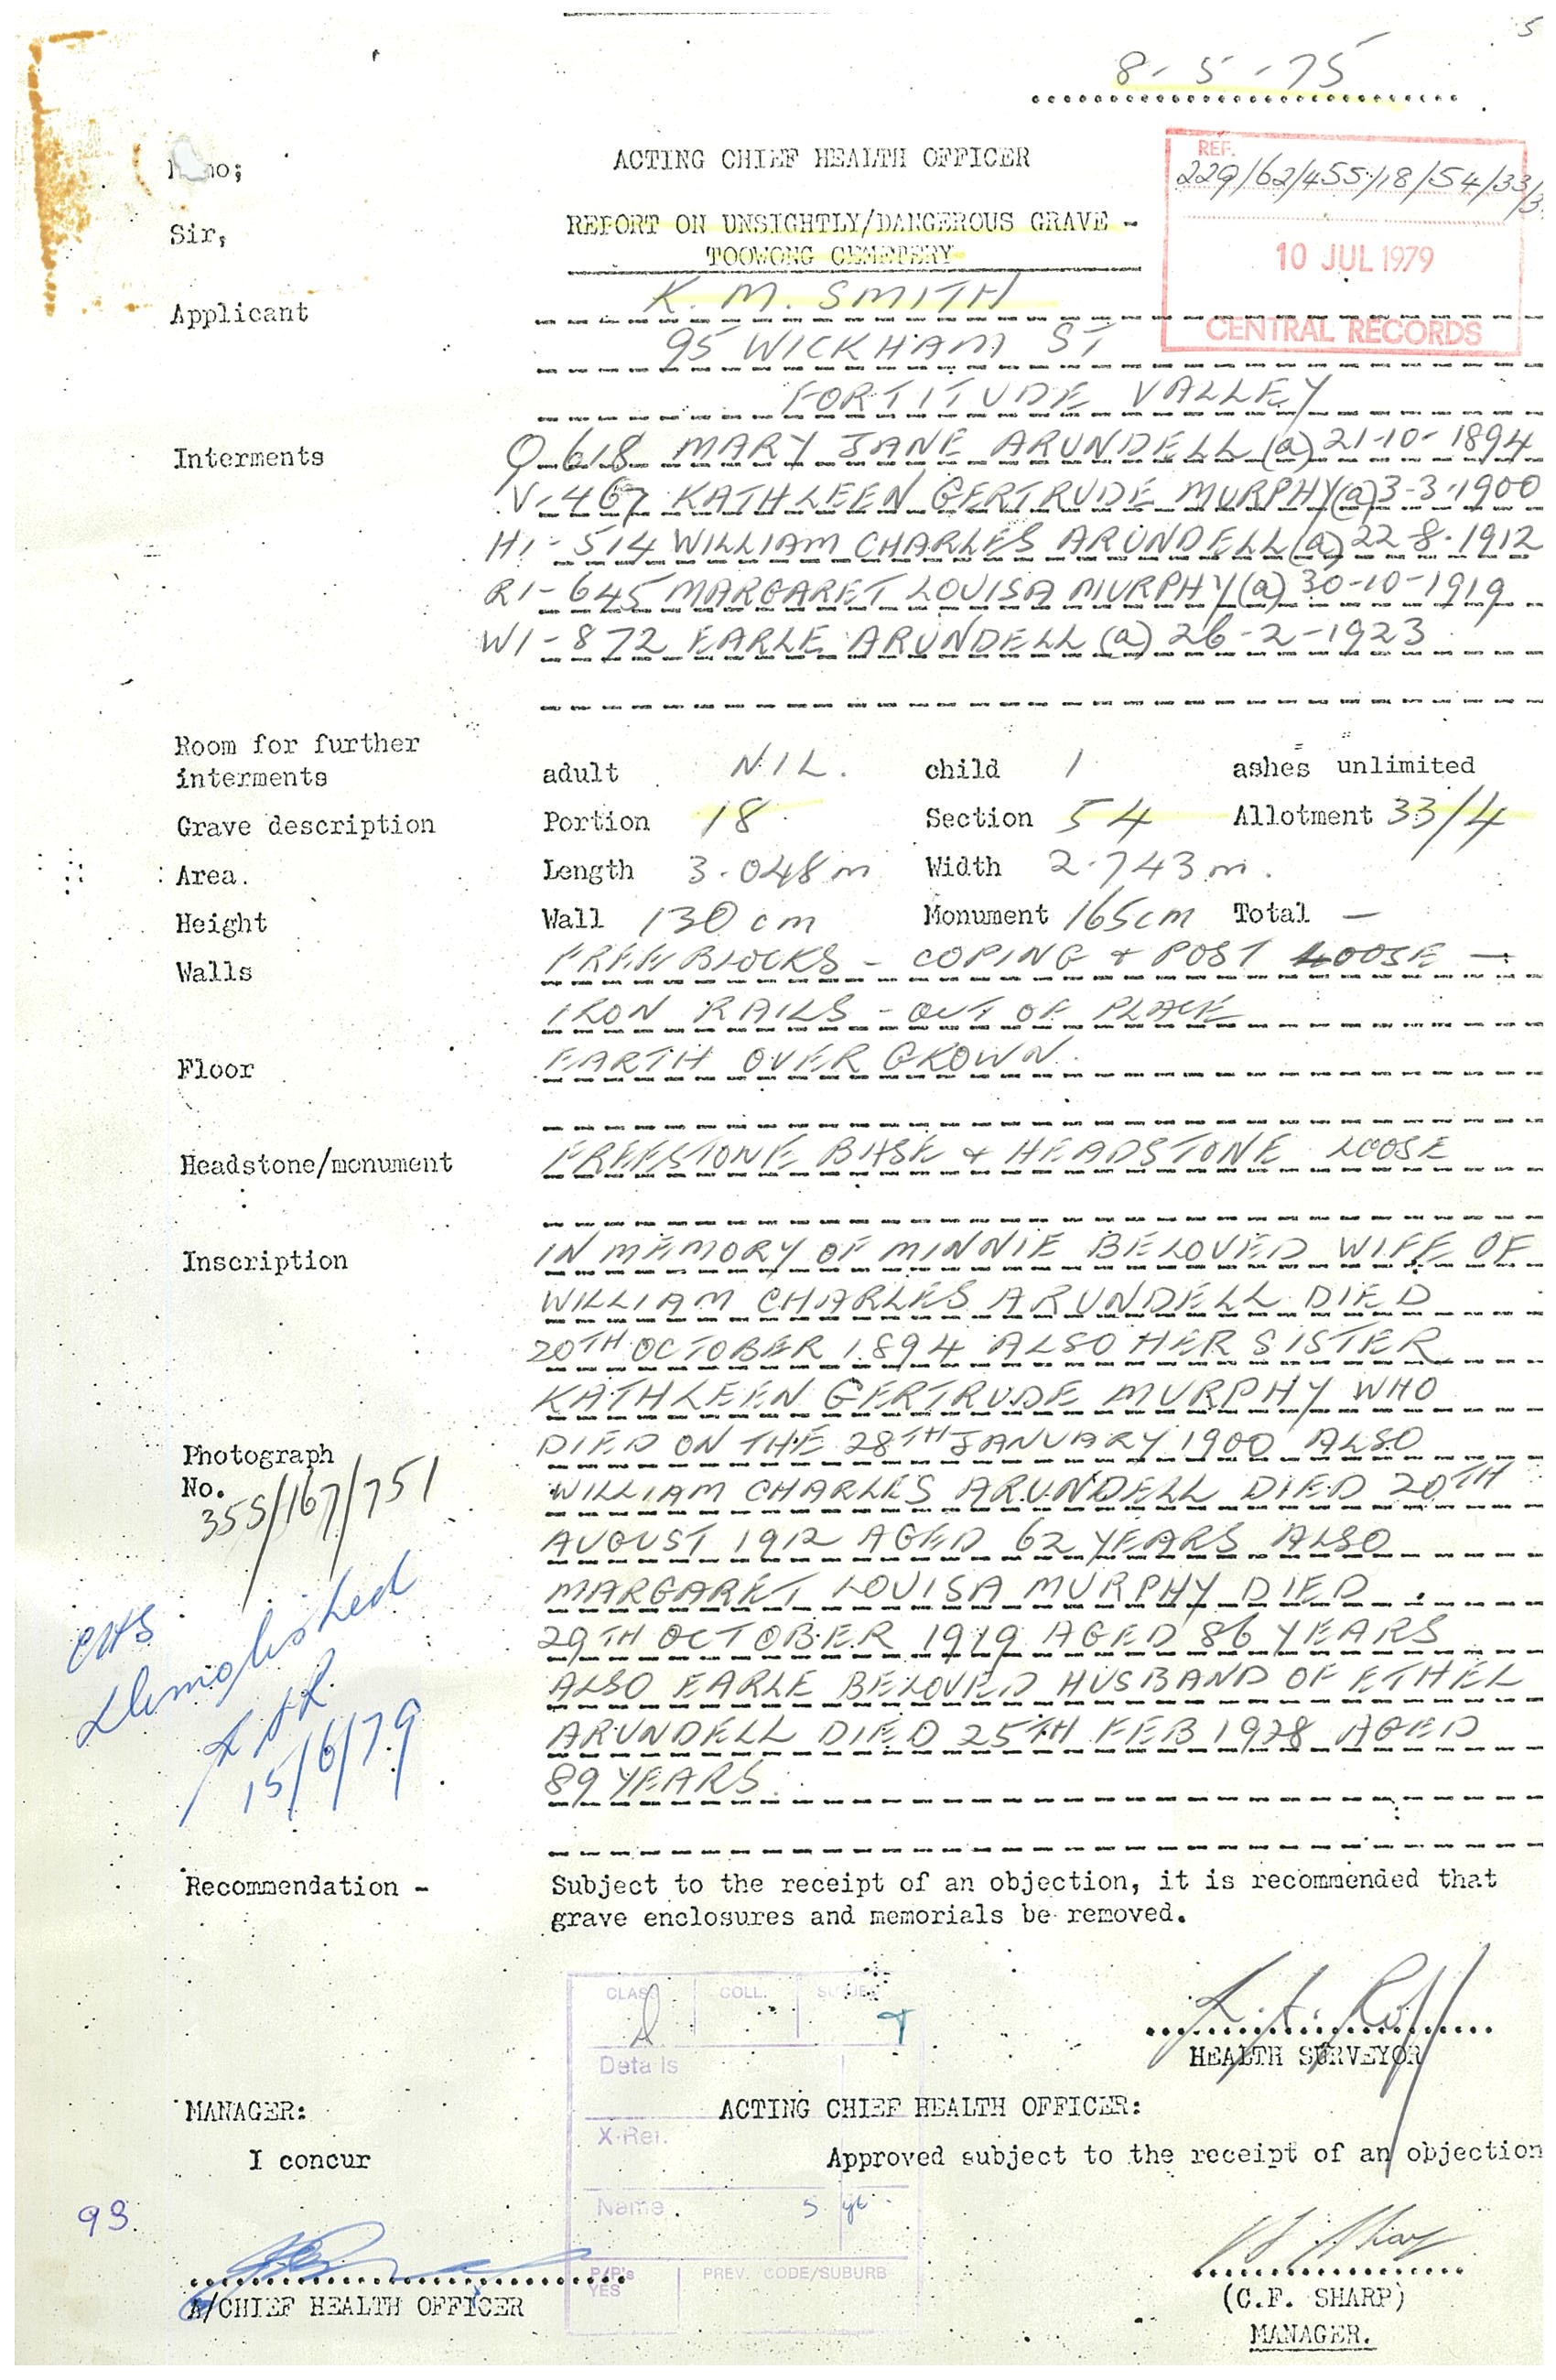 5
8-5-75
ACTING CHIEF HEALTH OFFICER
REF.
229/62/455/18/54/33/3
Sir,
REPORT ON UNSIGHTLY/DANGEROUS GRAVE -
TOOWONG CEMETERY
10 JUL 1979
CENTRAL RECORDS
Applicant K. M. SMITH
95 WICKHAM ST
FORTITUDE VALLEY
Interments Q-618 MARY JANE ARUNDELL (a) 21-10-1894
V-467 KATHLEEN GERTRUDE MURPHY (a) 3-3-1900
H1-514 WILLIAM CHARLES ARUNDELL (a) 22-8-1912
R1-645 MARGARET LOUISA MURPHY (a) 30-10-1919
W1-872 EARLE ARUNDELL (a) 26-2-1923
Room for further
interments adult NIL. child 1 ashes unlimited
Grave description Portion 18 Section 54 Allotment 33/4
Area. Length 3.048m Width 2.743m.
Height Wall 130cm Monument 165cm Total —
Walls FREE BLOCKS - COPING & POST LOOSE —
IRON RAILS - OUT OF PLACE
Floor EARTH OVER GROWN.
Headstone/monument FREESTONE BASE & HEADSTONE LOOSE
Inscription IN MEMORY OF MINNIE BELOVED WIFE OF
WILLIAM CHARLES ARUNDELL DIED
20TH OCTOBER 1894 ALSO HER SISTER
KATHLEEN GERTRUDE MURPHY WHO
DIED ON THE 28TH JANUARY 1900 ALSO
Photograph
No. 355/167/751
WILLIAM CHARLES ARUNDELL DIED 20TH
AUGUST 1912 AGED 62 YEARS ALSO
MARGARET LOUISA MURPHY DIED
29TH OCTOBER 1919 AGED 86 YEARS
ALSO EARLE BELOVED HUSBAND OF ETHEL
ARUNDELL DIED 25TH FEB 1928 AGED
89 YEARS
Demolished
15/6/79
Recommendation - Subject to the receipt of an objection, it is recommended that
grave enclosures and memorials be removed.
CLASS COLL. SUBJECT
Details
X-Ref.
Name
P/P's
YES
PREV. CODE/SUBURB
HEALTH SURVEYOR
MANAGER: ACTING CHIEF HEALTH OFFICER:
I concur Approved subject to the receipt of an objection
93.
A/CHIEF HEALTH OFFICER
(C.F. SHARP)
MANAGER.